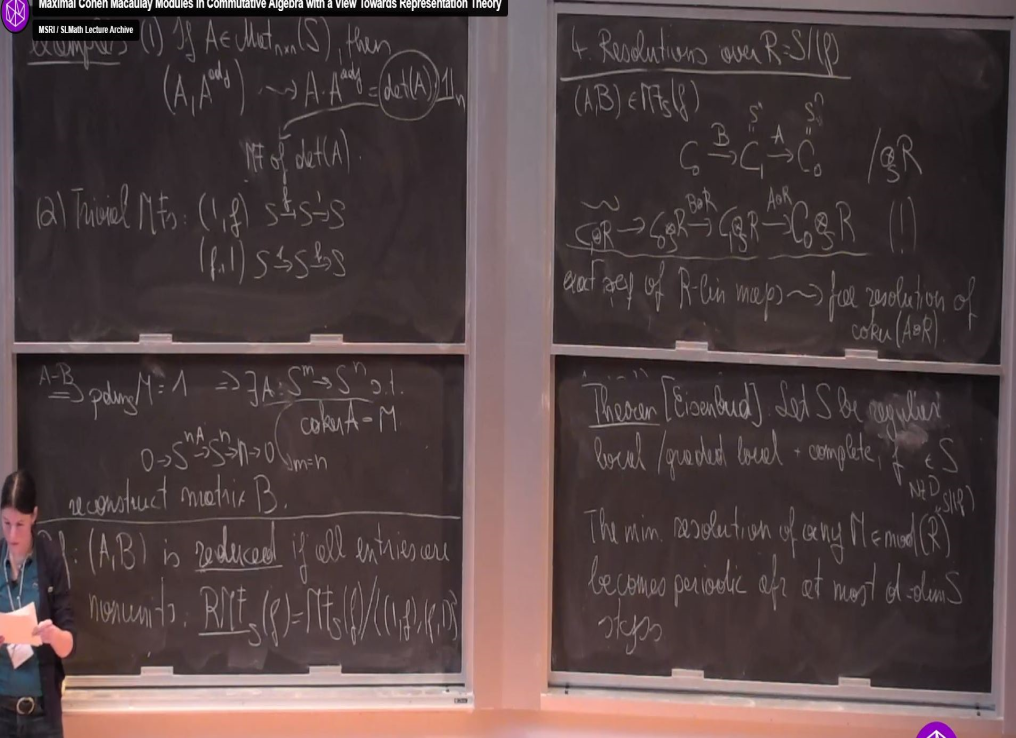 Maximal Cohen Macaulay Modules in Commutative Algebra with a View Towards Representation Theory
MSRI / SLMath Lecture Archive
Examples (1) If A ∈ Mat_{n×n}(S), then
(A, A^{adj}) ⇝ A·A^{adj} = det(A)·1_n
MF of det(A).
(2) Trivial MFs: (1,f) S →^f S →^1 S
(f,1) S →^1 S →^f S
A-B ⟹ pdim_S M = 1 ⟹ ∃ A: S^m → S^n s.t.
coker A = M
0 → S^n →^A S^n → M → 0
m=n
reconstruct matrix B.
: (A,B) is reduced if all entries are
nonunits. RMF_S(f) = MF_S(f)/{(1,f),(f,1)}
4. Resolutions over R=S/(f)
(A,B) ∈ MF_S(f)
S^n S^n
C_0 →^B C_1 →^A C_0 /⊗_S R
C_1⊗R → C_0⊗_S R →^{B⊗R} C_1⊗_S R →^{A⊗R} C_0⊗_S R (!)
exact seq of R-lin maps ⇝ free resolution of
coker(A⊗R).
Theorem [Eisenbud]. Let S be regular
local/graded local + complete, f ∈ S
NZD
S/(f)
The min. resolution of any M ∈ mod(R)
becomes periodic after at most d=dim S
steps